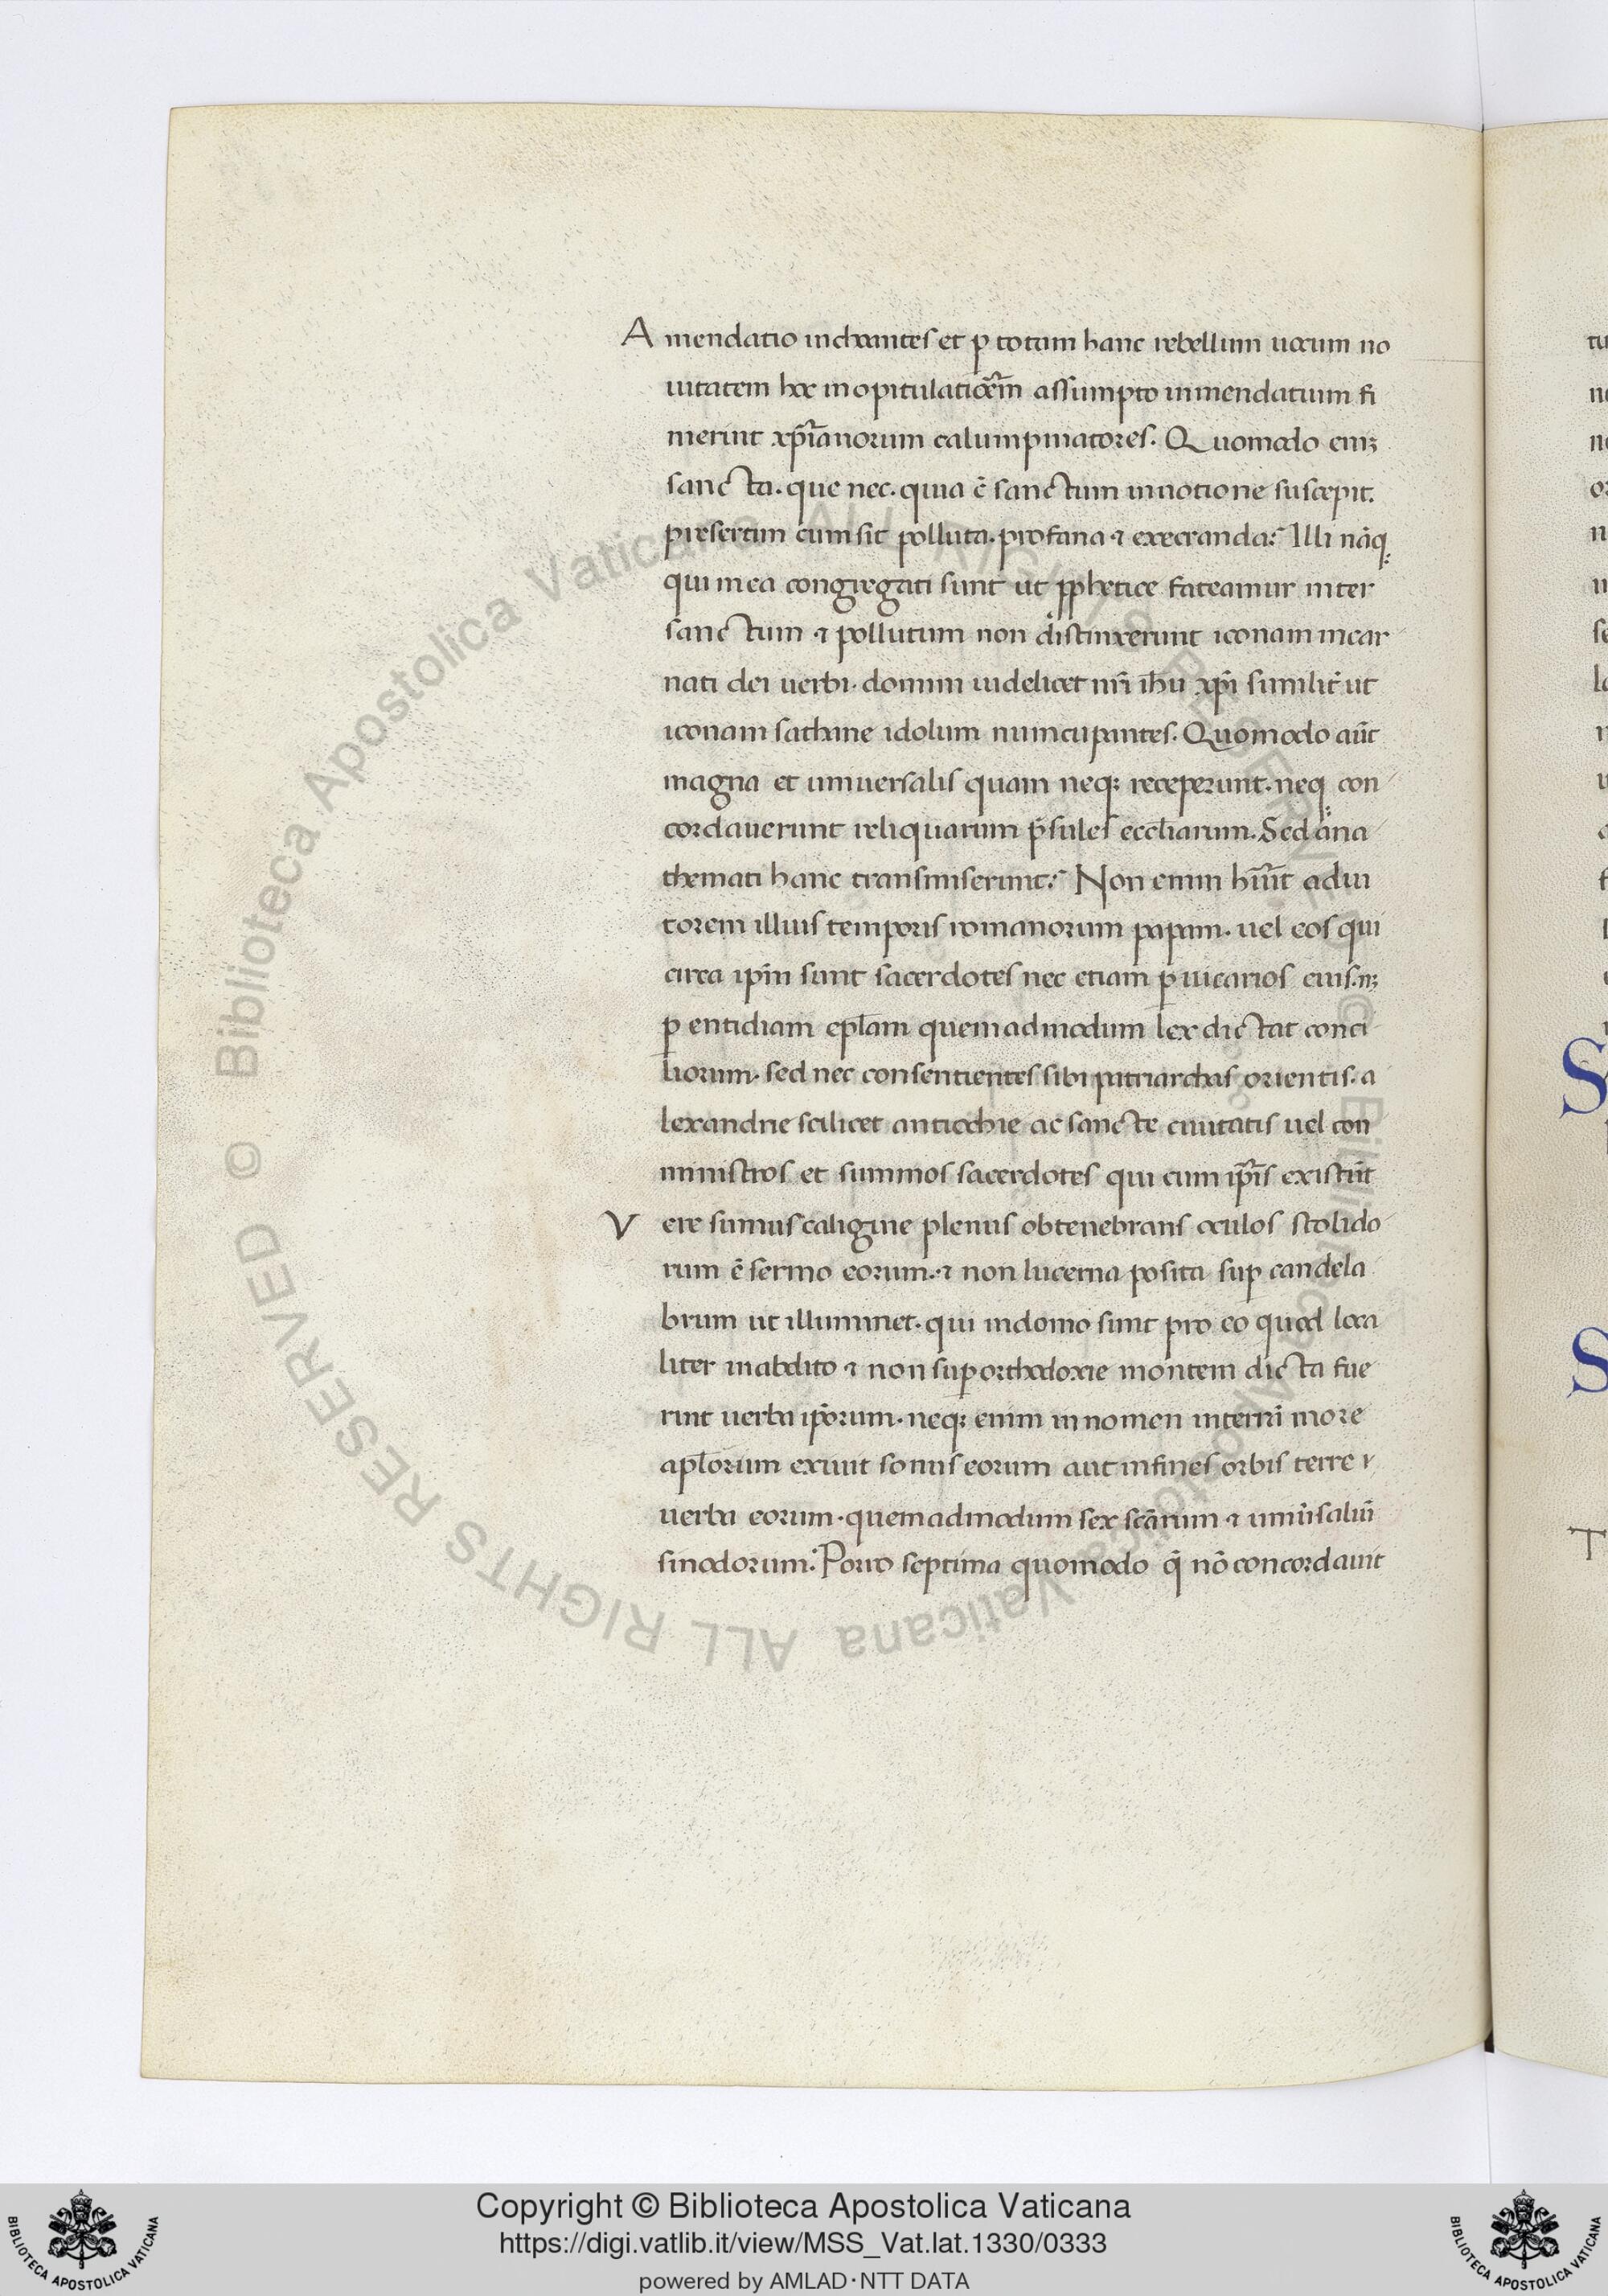 A mendatio inchoantes et p totam hanc rebellium uocum no
uitatem hoc inopitulatiōem assumpto inmendatium fi
nierint xp̄ianorum calumpniatores. Quomodo eni3
sancta. que nec. quia ē sanctum innotione suscepit.
presertim cum sit polluta. profana ⁊ execranda: Illi nāq;
qui in ea congregati sunt ut prphetice fateamur inter
sanctum ⁊ pollutum non distinxerunt iconam incar
nati dei uerbi. domini uidelicet nr̄i ih̄u xp̄i similit̄ ut
iconam sathane idolum nuncupantes. Quomodo aūt
magna et uniuersalis quam neq; receperunt. neq; con
cordauerunt reliquarum p̄sules eccl̄iarum. Sed ana
themati hanc transmiserunt: Non enim hūīt adiu
torem illius temporis romanorum papam. uel eos qui
circa ip̄m sunt sacerdotes nec etiam p uicarios eius. n3
p entidiam epl̄am quemadmodum lex dictat conci
liorum. sed nec consentientes sibi patriarchas orientis. a
lexandrie scilicet antiochie ac sancte ciuitatis uel con
ministros et summos sacerdotes qui cum ip̄is existūt
V ere fumus caligine plenus obtenebrans oculos stolido
rum ē sermo eorum. ⁊ non lucerna posita sup candela
brum ut illuminet. qui indomo sunt pro eo quod loca
liter inabdito ⁊ non sup orthodoxie montem dicta fue
rint uerba ip̄orum. neq; enim in nomen more
apl̄orum exiuit sonus eorum aut infines orbis terre
uerba eorum. quemadmodum sex scārum ⁊ uniūsaliū
sinodorum: Porro septima quomodo q̄ nō concordauit
Copyright © Biblioteca Apostolica Vaticana
https://digi.vatlib.it/view/MSS_Vat.lat.1330/0333
powered by AMLAD·NTT DATA
BIBLIOTECA APOSTOLICA VATICANA
BIBLIOTECA APOSTOLICA VATICANA
© Biblioteca Apostolica Vaticana ALL RIGHTS RESERVED © Biblioteca Apostolica Vaticana ALL RIGHTS RESERVED